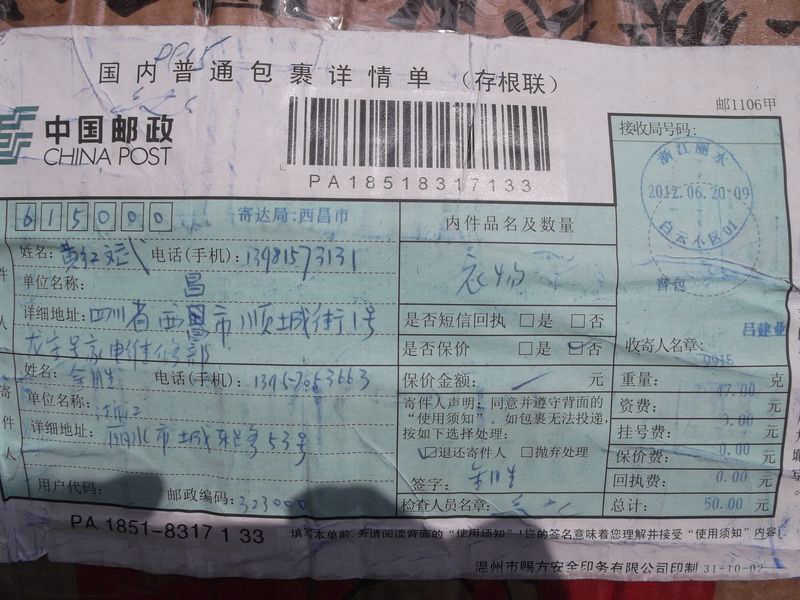 国内普通包裹详情单 (存根联)
邮1106甲
中国邮政
CHINA POST
PA18518317133
接收局号码:
浙江丽水
2012.06.20.09
白云小区01
普包
615000
寄达局:西昌市
内件品名及数量
姓名: 电话(手机): 13981573131
衣物
单位名称:
昌
详细地址: 四川省西昌市顺城街1号
是否短信回执 □是 □否
是否保价 □是 ☑否
吕建业
收寄人名章:
姓名: 电话(手机):
保价金额: 元
重量: 克
单位名称:
寄件人声明:同意并遵守背面的
“使用须知”。如包裹无法投递,
按如下选择处理:
资费: 元
详细地址: 丽水市 53号
挂号费: 元
☑退还寄件人 □抛弃处理
保价费: 0.00 元
签字:
回执费: 0.00 元
用户代码:
邮政编码: 323000
检查人员名章:
总计: 50.00 元
PA 1851-8317 1 33
填写本单前,务请阅读背面的“使用须知”!您的签名意味着您理解并接受“使用须知”内容
温州市赐方安全印务有限公司印制 31-10-02